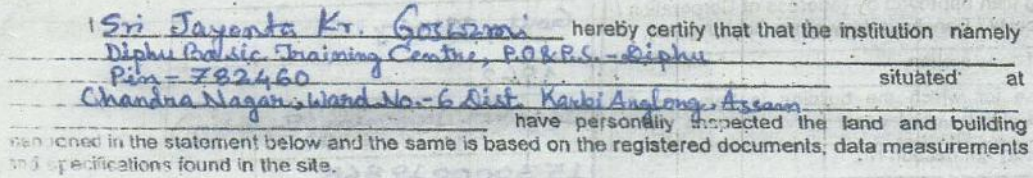 I Sri Jayanta Kr. Goswami hereby certify that that the institution namely
Diphu Basic Training Centre, P.O & P.S. - Diphu
Pin - 782460 situated at
Chandra Nagar, Ward No. - 6 Dist. Karbi Anglong, Assam
have personally inspected the land and building
in the statement below and the same is based on the registered documents, data measurements
specifications found in the site.